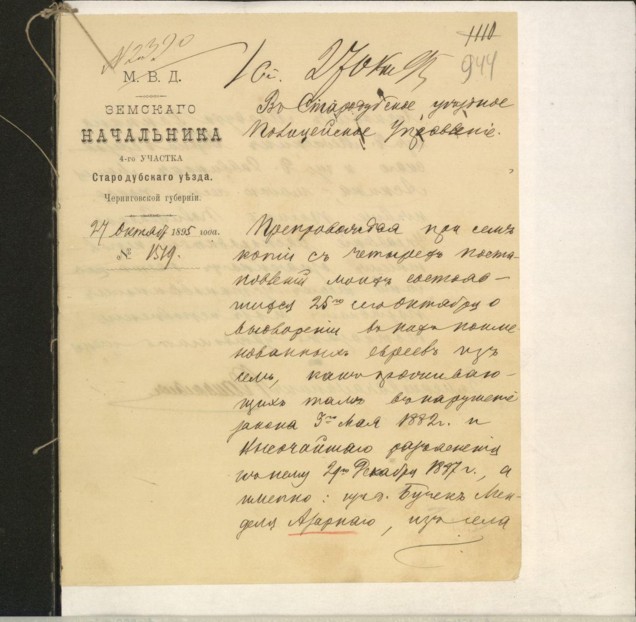 № 2390
М. В. Д.
ЗЕМСКАГО
НАЧАЛЬНИКА
4-го УЧАСТКА
Стародубскаго уѣзда.
Черниговской губерніи.
27 Октября 1895 года.
№ 1519.
1110
944
27 Окт 95
Въ Стародубское уѣздное
Полицейское Управленіе.
Препровождая при семъ
копіи съ четырехъ поста
новленій моихъ состояв-
шихся 25го сего Октября о
выдвореніи въ нихъ поиме
нованныхъ евреевъ изъ
селъ, какъ проживаю-
щихъ тамъ въ нарушеніе
закона 3го Мая 1882 г. и
Высочайшаго разъясненія
къ нему 29го Декабря 1887 г., а
именно: Мен-
деля Агарнаго, изъ села